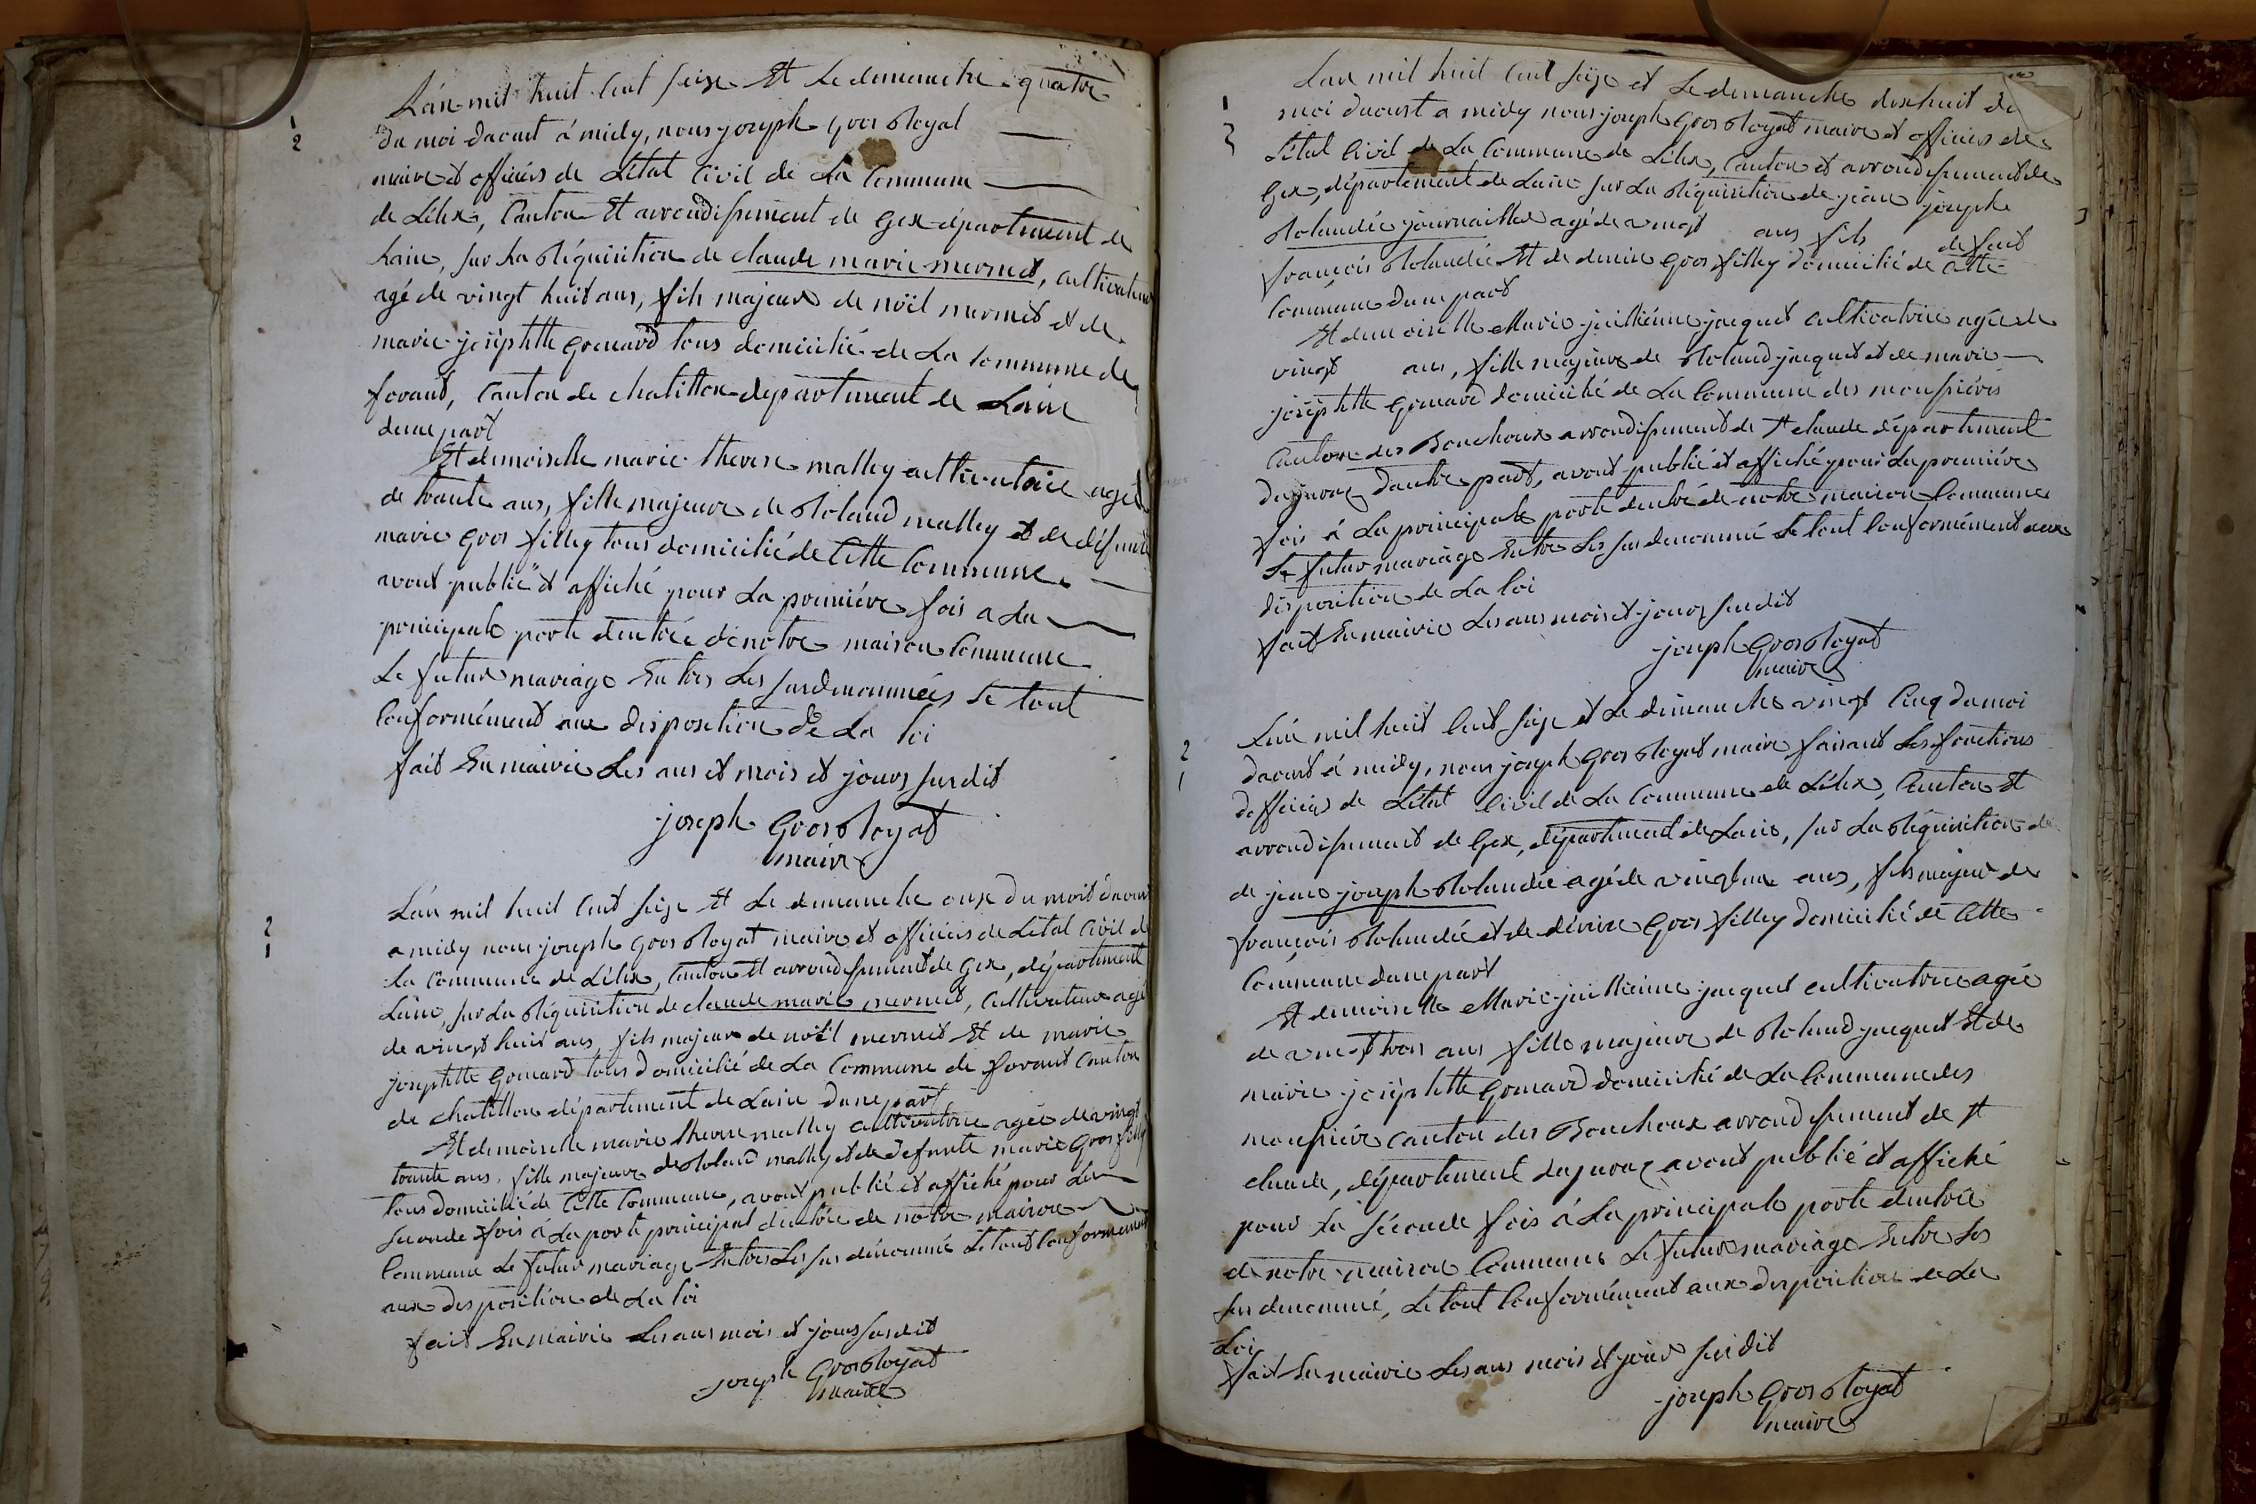 1
2
L'an mil huit cent seize Et Le dimanche quatre
du moi daoust á midy, nous joseph Gros Royat
maire et officiers de L'état Civil de La Commune
de Lélex, Canton Et arrondissement de Gex département de
Laine, sur La Réquisition de claude marie mermet, cultivateur
agé de vingt huit ans, fils majeur de noël mermet et de
marie joséphtte Gonard tous domicilié de La commune de
forant, Canton de chatillon département de Lain
dune part
Et demoiselle marie therese malley cultivatrice agée
de trante ans, fille majeure de Roland malley et de défunte
marie Gros filley tous domicilié de Cette Commune
avont publié et affiché pour La premiére fois a La
principale porte dentrée de notre maison Commune
Le futur mariage Entres Les susdenommées Le tout
Conformément aux disposition de La loi
fait En mairie Les ans et mois et jours susdit
joseph Gros Royat
maire
2
1
L'an mil huit Cent seize Et Le dimanche onze du moit daoust
a midy nous joseph Gros Royat maire et officiers de L'état Civil de
La Commune de Lélex, Canton Et arrondissement de Gex, département
Laine, sur La Réquisition de claude marie mermet, Cultivateur agé
de vingt huit ans, fils majeur de noël mermet Et de marie
josephtte Gonard tous domicilié de La Commune de forant Canton
de chatillon département de Laine dune part
Et demoiselle marie therese malley cultivatrice agée de vingt
trante ans, fille majeure de Roland malley et de defunte marie Gros filley
tous domicilié de Cette Commune, avont publié et affiché pour La
seconde fois á La porte principal dentrée de notre maison
Commune Le futur mariage Entres Les sus dénommé Le tout Conformément
aux desposition de La loi
fait En mairie Les ans mois et jours susdit
joseph Gros Royat
maire
1
2
Lan mil huit Cent seize et Le dimanche dixhuit de
moi daoust a midy nous joseph Gros Royat maire et officiers de
L'état Civil de La Commune de Lélex, Canton et arrondissement de
Gex, département de Laine sur La Réquisition de jean joseph
Rolandée journaillier agé de vingt ans fils de feut
françois Rolandée Et de denise Gros filley domicilié de Cette
Commune dune part
Et demoiselle Marie jullienne jacquet cultivatrice agée de
vingt ans, fille majeure de Roland jacquet et de marie
joséphtte Gonard domicilié de La Commune des mousiéres
Canton des Bouchoux arrondissement de St claude département
du jura dautre part, avont publié et affiché pour La premiére
fois á La principale porte dentré de notre maison Commune
Le futur mariage Entre Les sus denommé Le tout Conformément aux
disposition de La loi
fait En mairie Les ans mois et jours susdit
joseph Gros Royat
maire
2
1
L'an mil huit Cent seize et Le dimanche vingt Cinq du moi
daoust á midy, nous joseph Gros Royat maire faisant Les fonctions
dofficiers de L'état Civil de La Commune de Lélex, Canton Et
arrondissement de Gex, département de Laine, sur La Réquisition de
de jean joseph Rolandée agé de vingt ans, fils majeur de
françois Rolandée et de dénise Gros filley domicilié de Cette
Commune dune part
Et demoiselle Marie jullienne jacquet cultivatrice agée
de vingt trois ans fille majeure de Roland jacquet Et de
marie joséphtte Gonard domicilié de La Commune des
mousiére Canton des Bouchoux arrondissement de St
claude, département du jura avont publié et affiché
pour La séconde fois á La principale porte dentrée
de notre maison Commune Le futur mariage Entre Les
sus denommé, Le tout Conformément aux disposition de La
Loi
fait En mairie Les ans mois Et jours susdit
joseph Gros Royat
maire